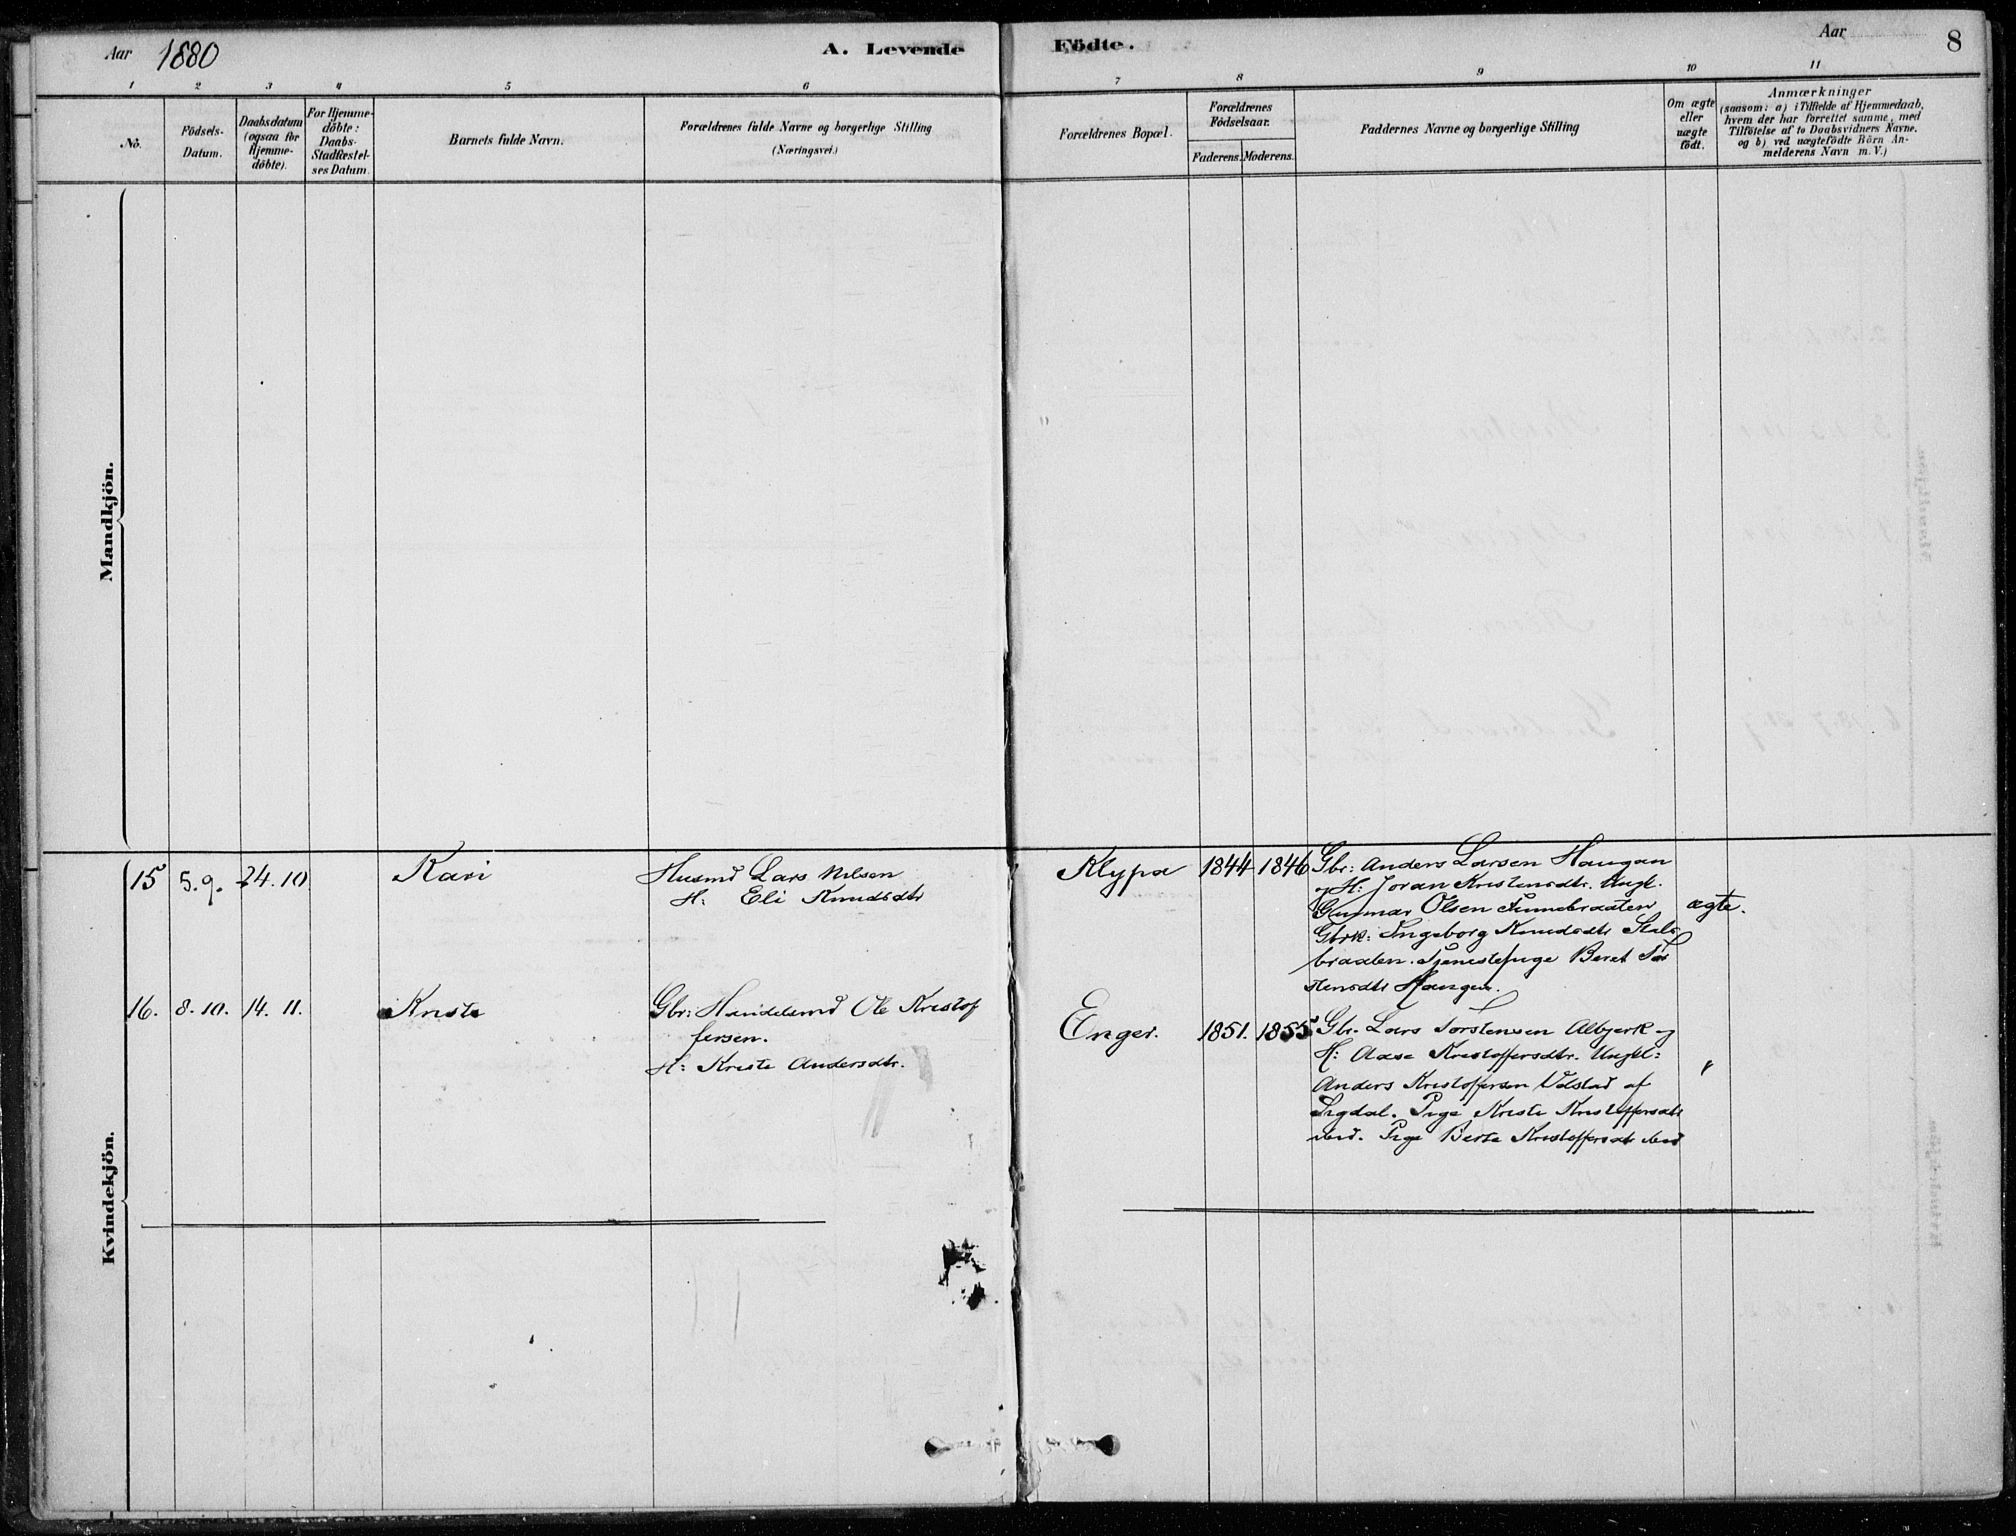 Aar 1880
A. Levende Födte.
Aar
8
1 2 3 4 5 6 7 8 9 10 11
No.
Födsels-
Datum.
Daabsdatum
(ogsaa for
Hjemme-
döbte).
For Hjemme-
döbte:
Daabs-
Stadfæstel-
ses Datum.
Barnets fulde Navn.
Forældrenes fulde Navne og borgerlige Stilling
(Næringsvei.)
Forældrenes Bopæl.
Forældrenes
Födselsaar.
Faderens. Moderens.
Faddernes Navne og borgerlige Stilling
Om ægte
eller
uægte
födt.
Anmærkninger
(saasom: a) i Tilfælde af Hjemmedaab,
hvem der har forrettet samme, med
Tilföielse af to Daabsvidners Navne.
og b) ved uægtefödte Börn An-
melderens Navn m. V.)
Mandkjön.
Kvindekjön.
15 5.9. 24.10 Kari
Husmd Lars Nilsen
H: Eli Knudsdtr
Klypa 1844 1846
Gbr: Anders Larsen Haugan
og H: Joran Kristensdtr. Ungk.
Gunnar Olsen Finnebraaten
Gbrk: Ingeborg Knudsdtr
braaten. Tjenestepige Beret Tor
stensdtr Haugen.
ægte.
16. 8.10. 14.11. Kriste
Gbr: Handelsmd Ole Kristof
fersen.
H: Kriste Andersdtr.
Enger. 1851. 1855
Gbr. Lars Torstensen Albjerk og
H: Aase Kristoffersdtr. Ungk:
Anders Kristoffersen Vdstad af
Sigdal. Pige Kriste Kristoffersdtr
ibid. Pige Berte Kristoffersdtr ibid
"